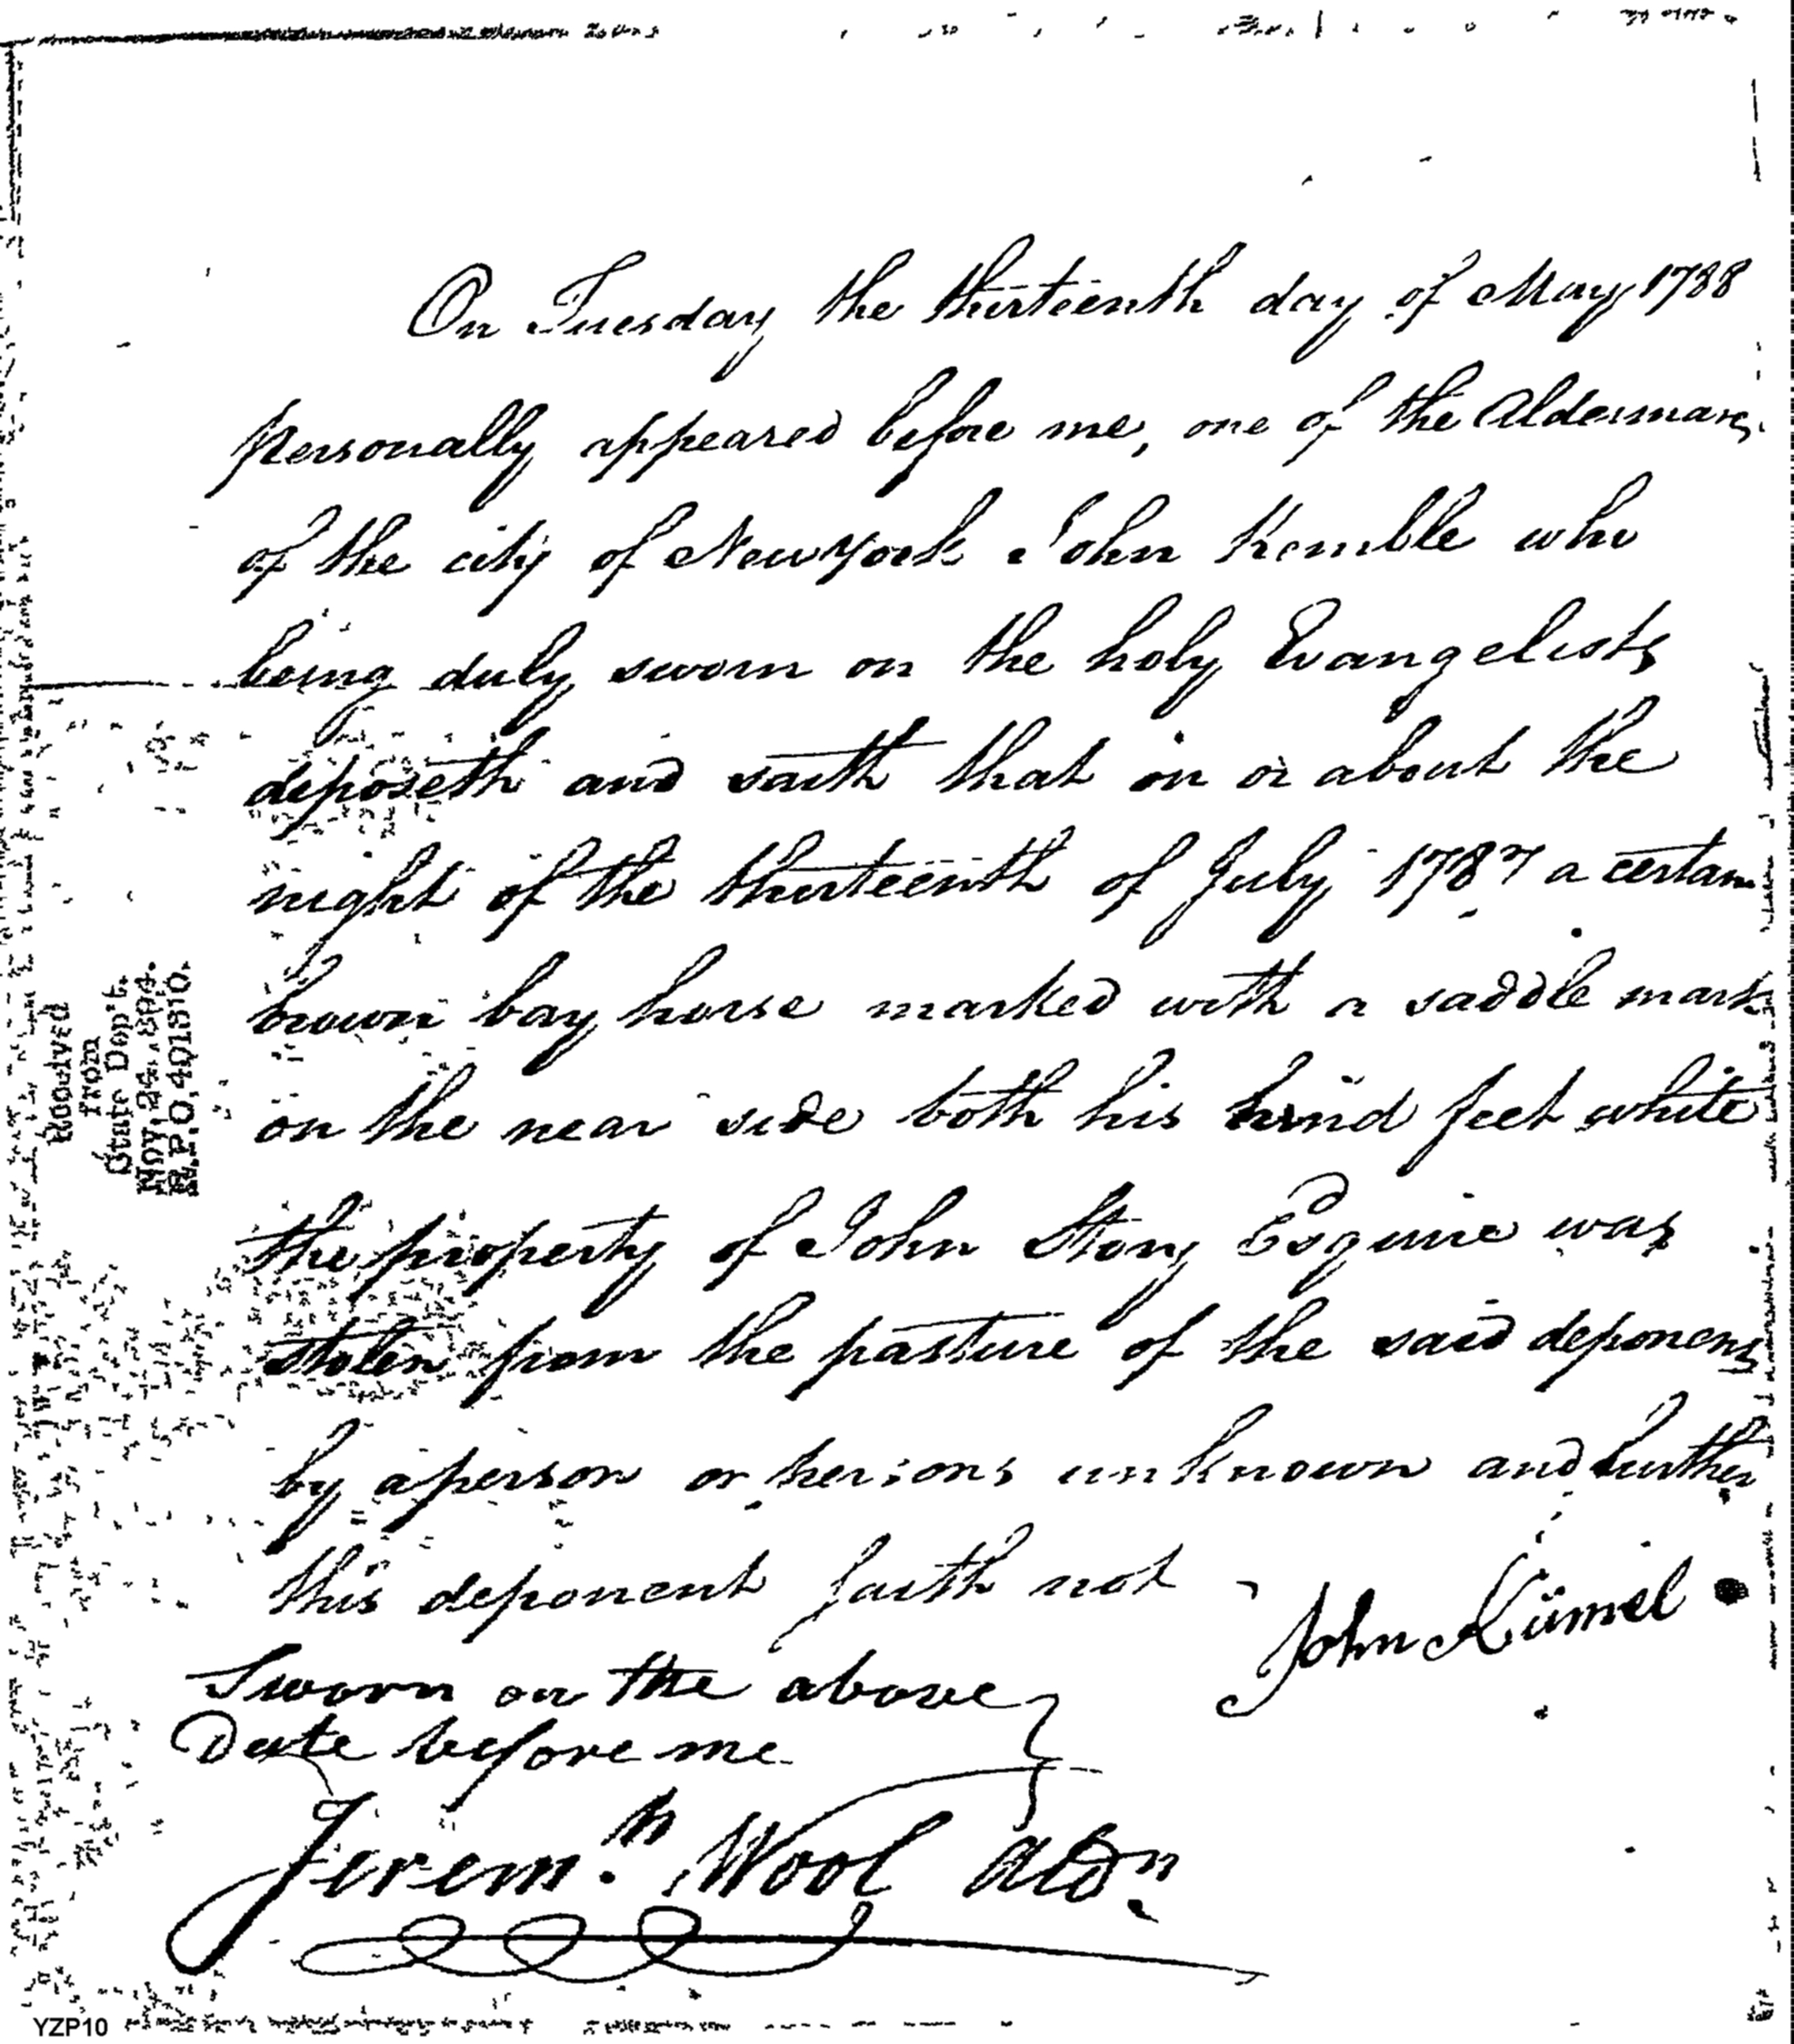 On Tuesday the thirteenth day of May 1788
personally appeared before me, one of the Aldermans
of the city of New York John Kemble who
being duly sworn on the holy Evangelists
deposeth and saith that on or about the
night of the thirteenth of July 1787 a certain
brown bay horse marked with a saddle mark
on the near side both his hind feet white
the property of John Story Esquire was
stolen from the pasture of the said deponent
by a person or persons unknown and further
this deponent saith not
John Kümel
Sworn on the above
Date before me
Jerem.h Wool Ald.n
Received
from
State Dep't.
Nov. 24, 1894.
R.P.O. 401510.
YZP10